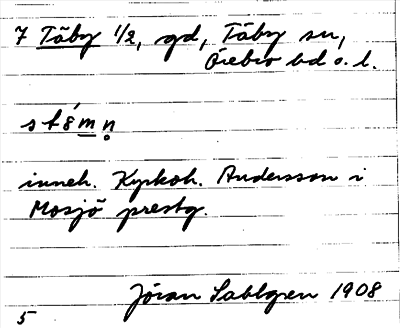 7 Täby 1/2, gd, Täby sn,
Örebro hd o. l.
inneh. Kyrkoh. Andersson i
Mosjö prestg.
Jöran Sahlgren 1908
5